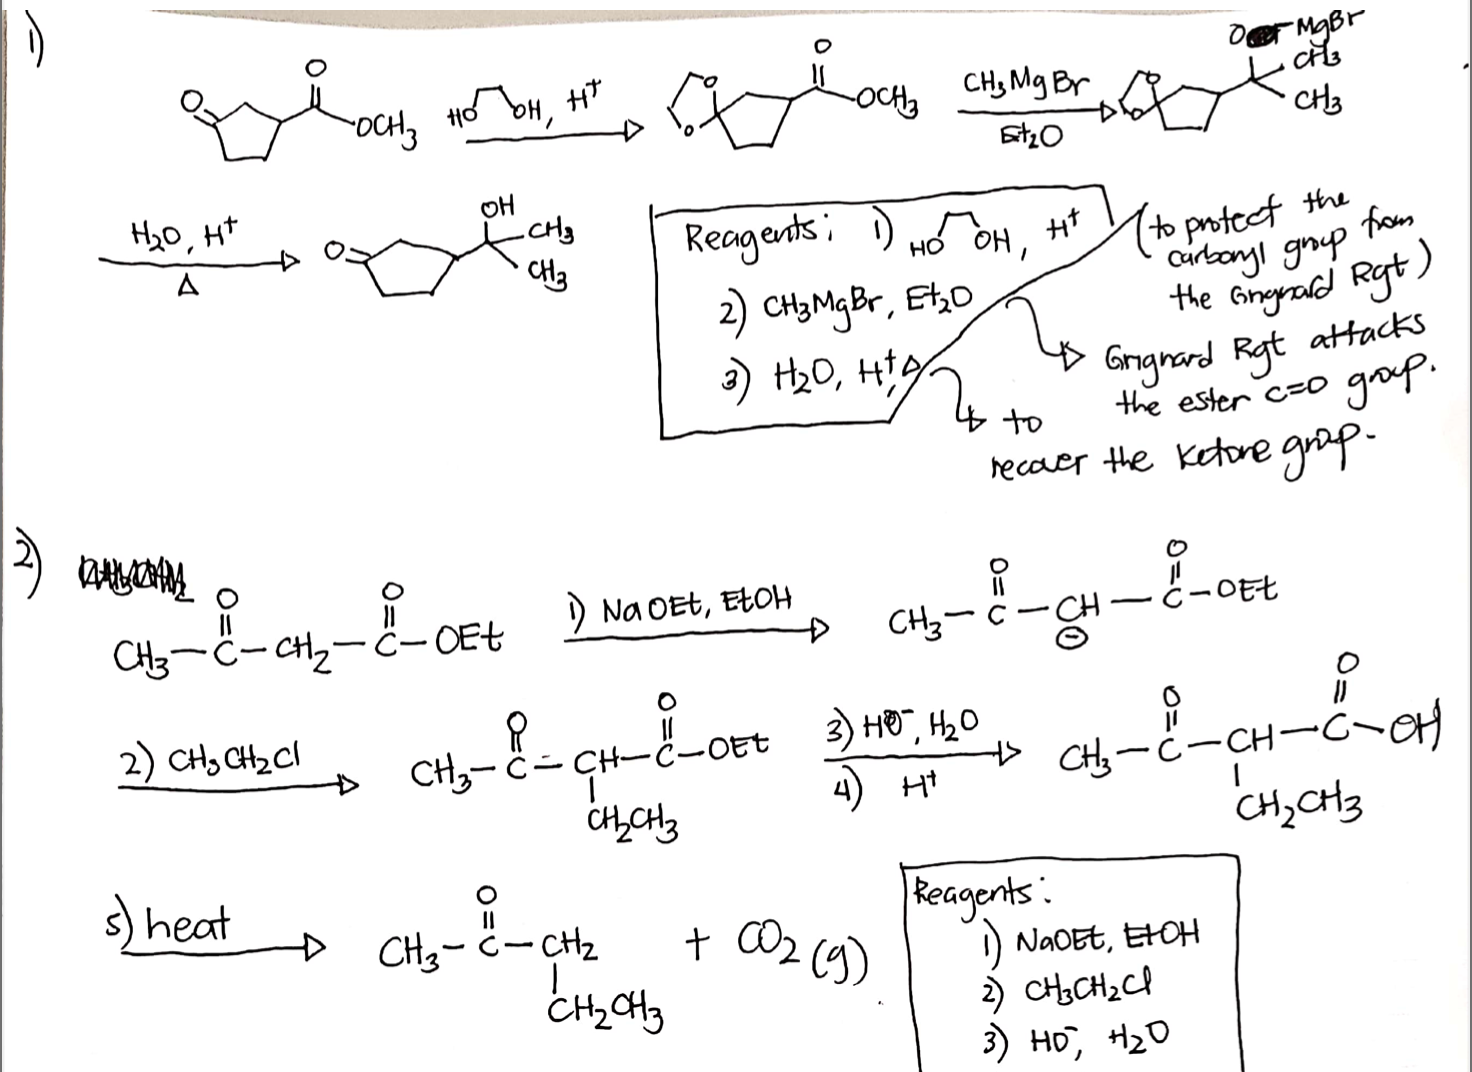 1)
O
O
OCH3
HO OH, H+
O
O
O
OCH3
CH3MgBr
Et2O
O
O
O MgBr
CH3
CH3
H2O, H+
Δ
O
OH
CH3
CH3
Reagents: 1) HO OH, H+
2) CH3MgBr, Et2O
3) H2O, H+, Δ
(to protect the
carbonyl group from
the Grignard Rgt)
Grignard Rgt attacks
the ester C=O group.
to
recover the ketone group.
2)
O O
CH3-C-CH2-C-OEt
1) NaOEt, EtOH
O O
CH3-C-CH-C-OEt
⊖
2) CH3CH2Cl
O O
CH3-C-CH-C-OEt
CH2CH3
3) HO-, H2O
4) H+
O O
CH3-C-CH-C-OH
CH2CH3
5) heat
O
CH3-C-CH2
CH2CH3
+ CO2(g)
Reagents:
1) NaOEt, EtOH
2) CH3CH2Cl
3) HO-, H2O